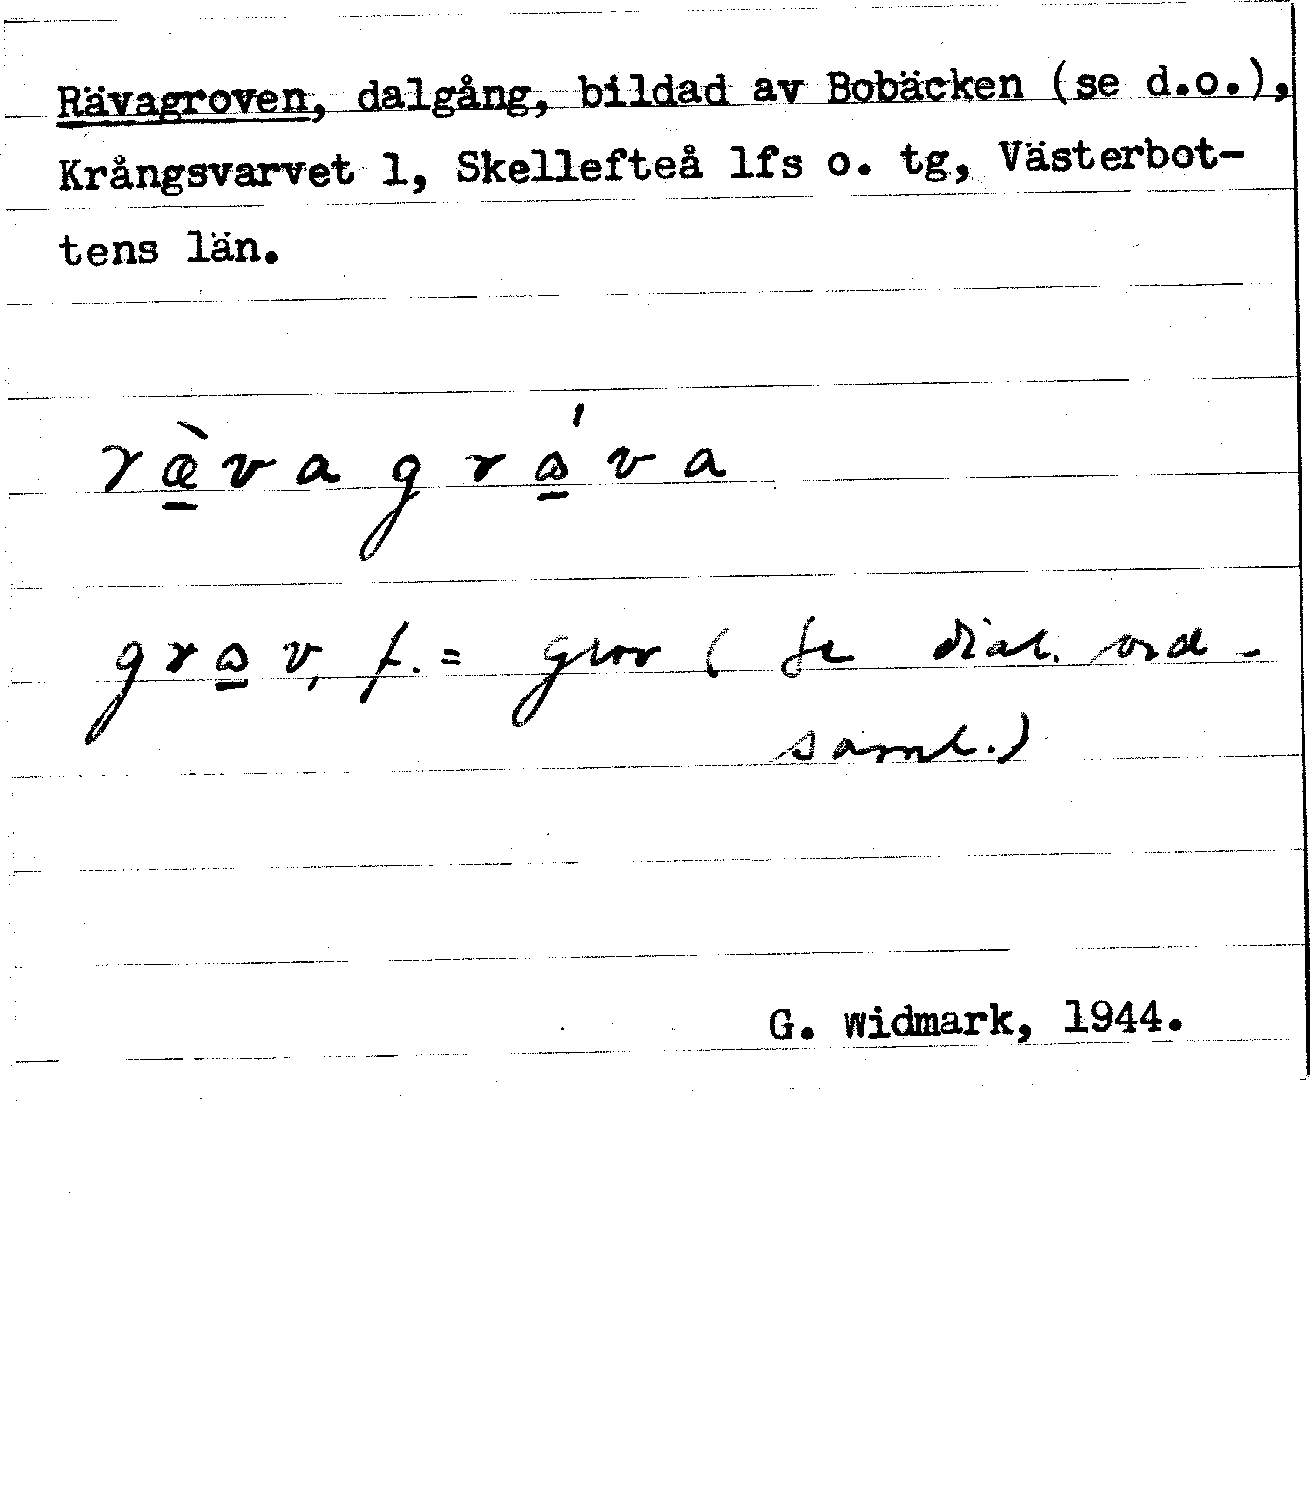 Rävagroven, dalgång, bildad av Bobäcken (se d.o.),
Krångsvarvet 1, Skellefteå lfs o. tg, Västerbot-
tens län.
ræ̀vagrá̱va
gra̱v, f. = grov (se dial. ord-
saml.)
G. Widmark, 1944.